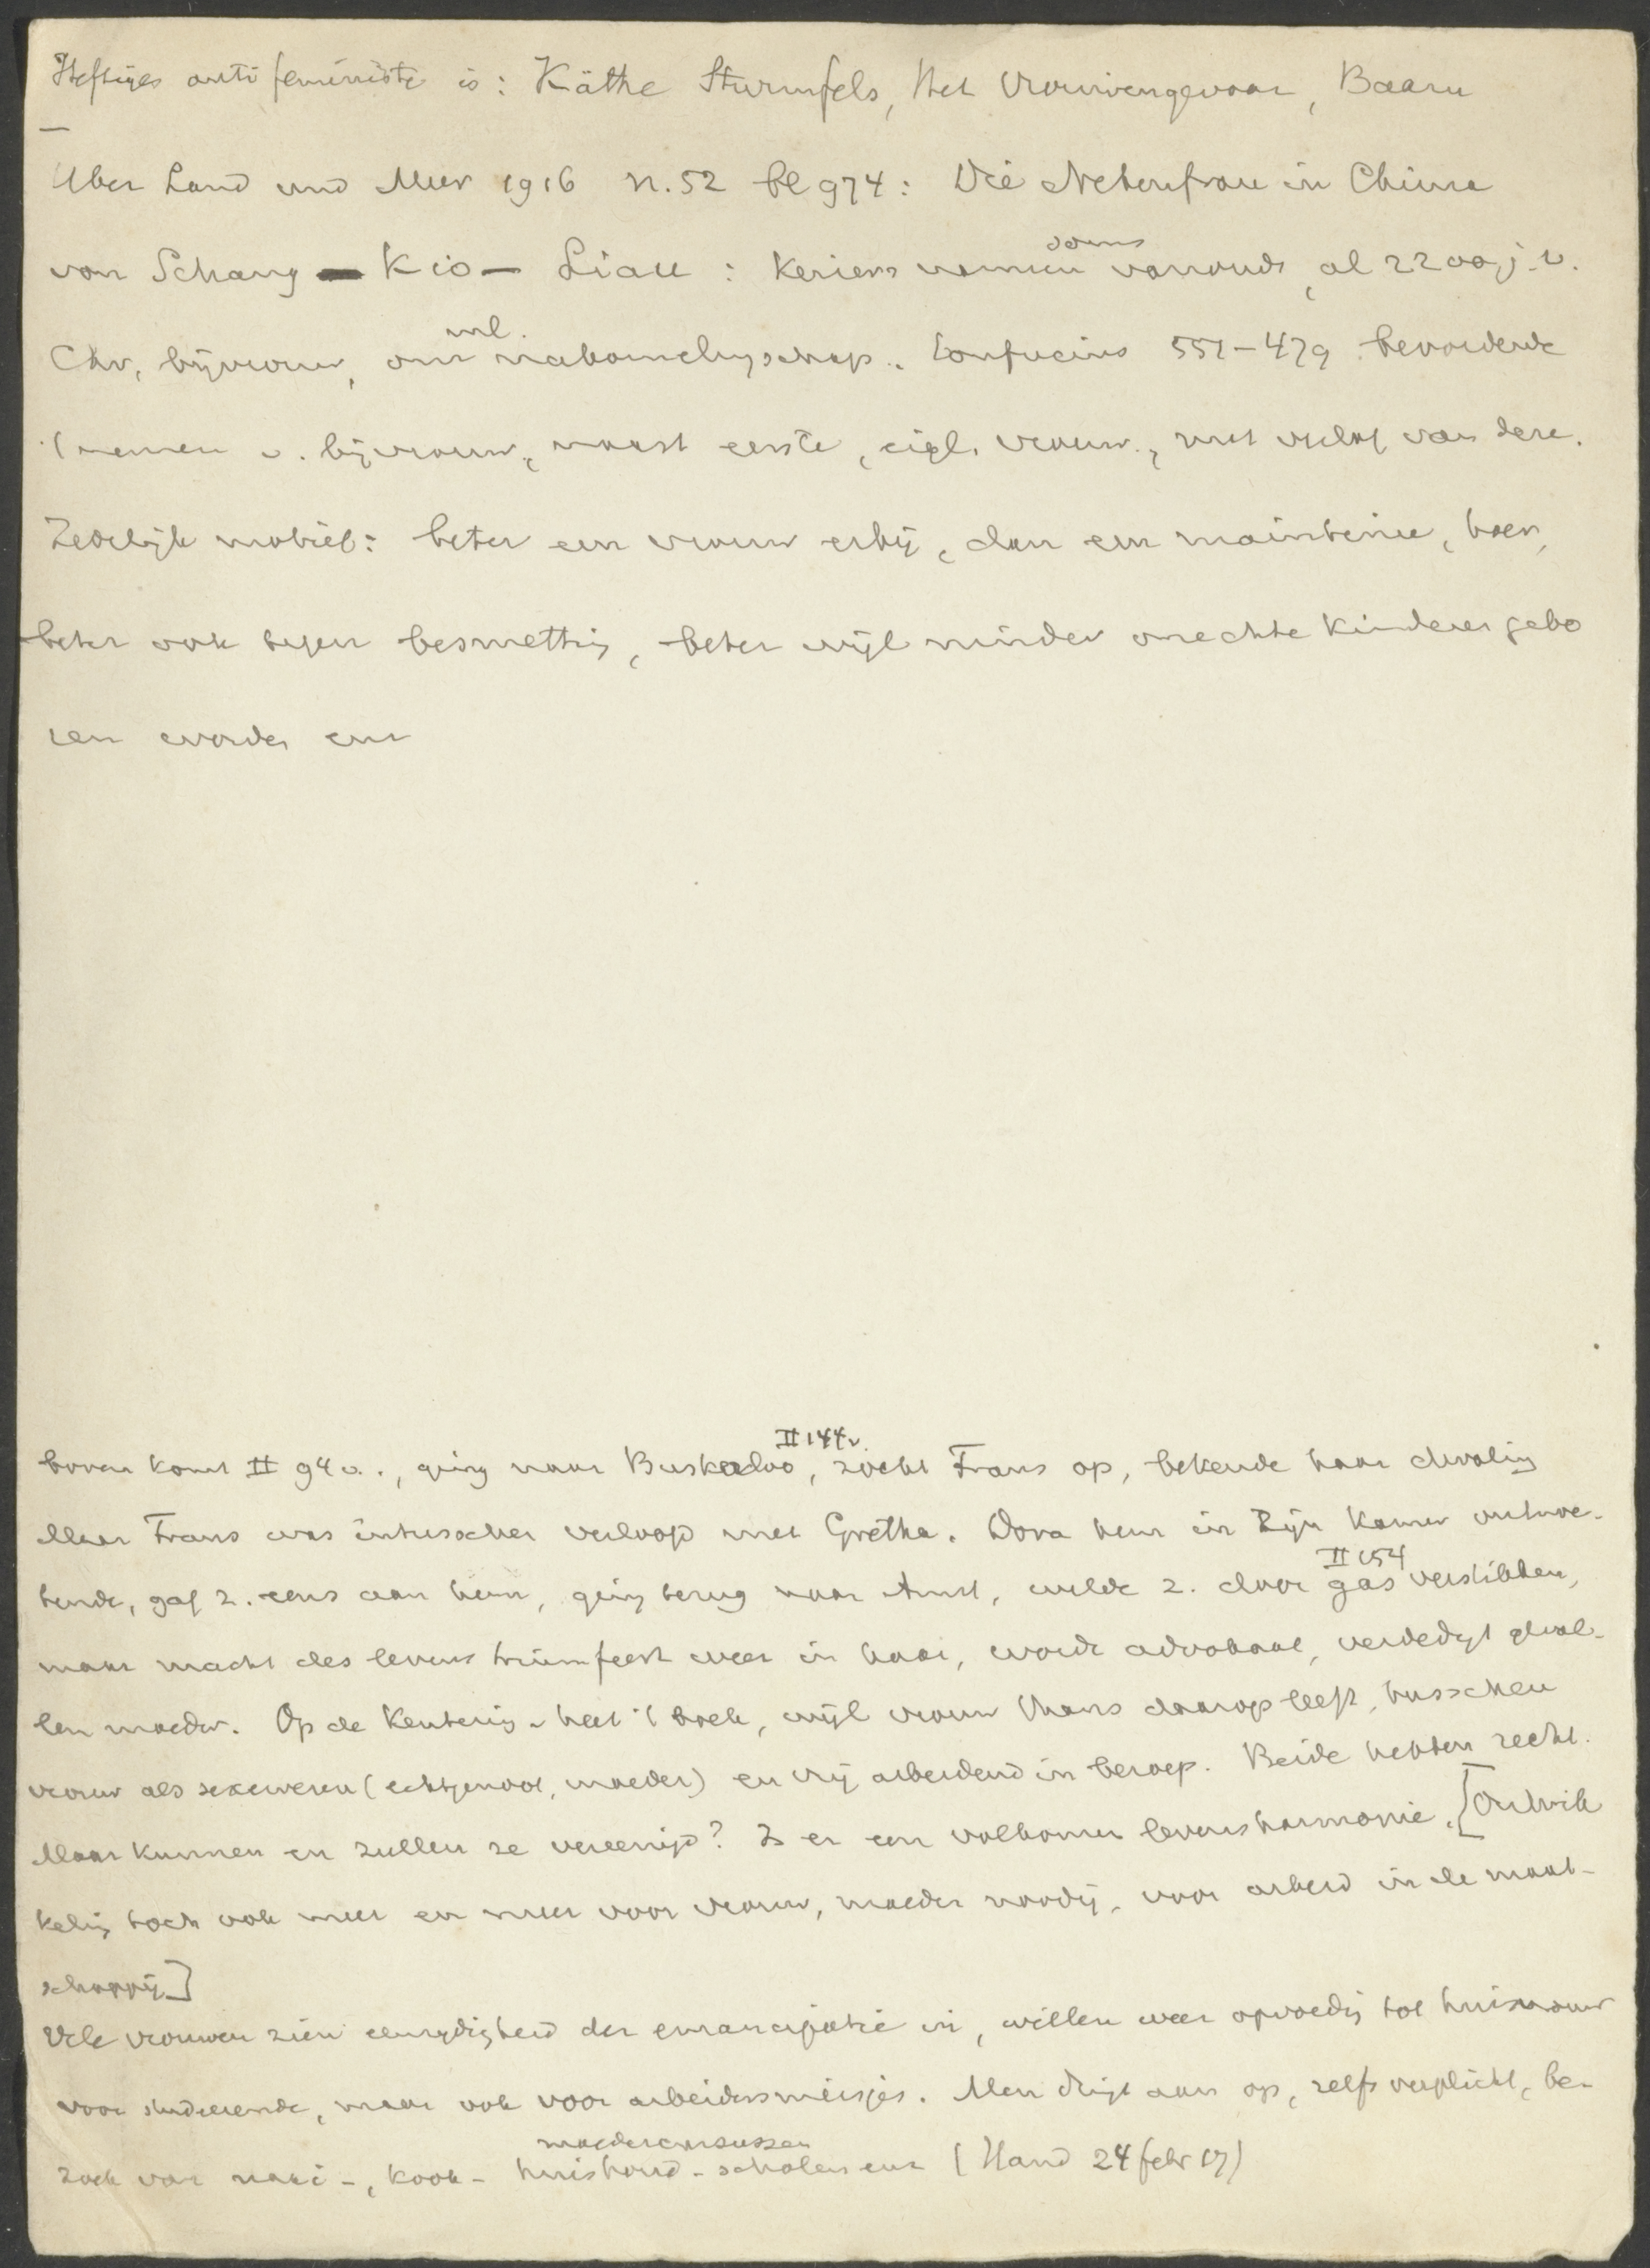 Heftiges antifeministe is: Käthe Sturmfels, Het Vrouwengevaar, Baarn
Uber Land und Meer 1916 n. 52 bl 974: Die Nebenfrau in China
von Schang - Kio - Liau : namen soms vanouds, al 2200 j. v.
Chr, bijvrouw, om ml. nakomelingschap. Confucius 551-479 bevorderde
't nemen v. bijvrouw, naast eerste, eigl. vrouw, met verlof van deze.
Zedelijk motief: beter een vrouw erbij, dan een maintenue, hoer,
beter ook tegen besmetting, beter wijl minder onechte kinderen gebo
ren worden enz
boven komt II 94 v., ging naar Buskadoo II 144 v., zocht Frans op, bekende haar dwaling
Maar Frans was intusschen verloofd met Gretha. Dora hem in zijn kamer ontmoe-
tende, gaf z. eens aan hem, ging terug naar Amst, wilde z. door gas II 154 verstikken,
maar macht des levens triumfeert weer in haar, wordt advokaat, verdedigt geval-
len moeder. Op de Kentering heet 't boek, wijl vrouw thans daarop leeft, tusschen
vrouw als sexewezen (echtgenoot, moeder) en vrij arbeidend in beroep. Beide hebben recht.
Maar kunnen en zullen ze vereenigd? Is er een volkomen levensharmonie. [Ontwik
keling toch ook meer en meer voor vrouw, moeder noodig, voor arbeid in de maat-
schappij]
Vele vrouwen zien eenzydigheid der emancipatie in, willen weer opvoedig tot huisvrouw
voor studeerende, maar ook voor arbeidersmeisjes. Men dringt aan op, zelfs verplicht, be-
zoek van naai-, kook- huishoud- scholen moedercursussen enz (Hand 24 febr 17)